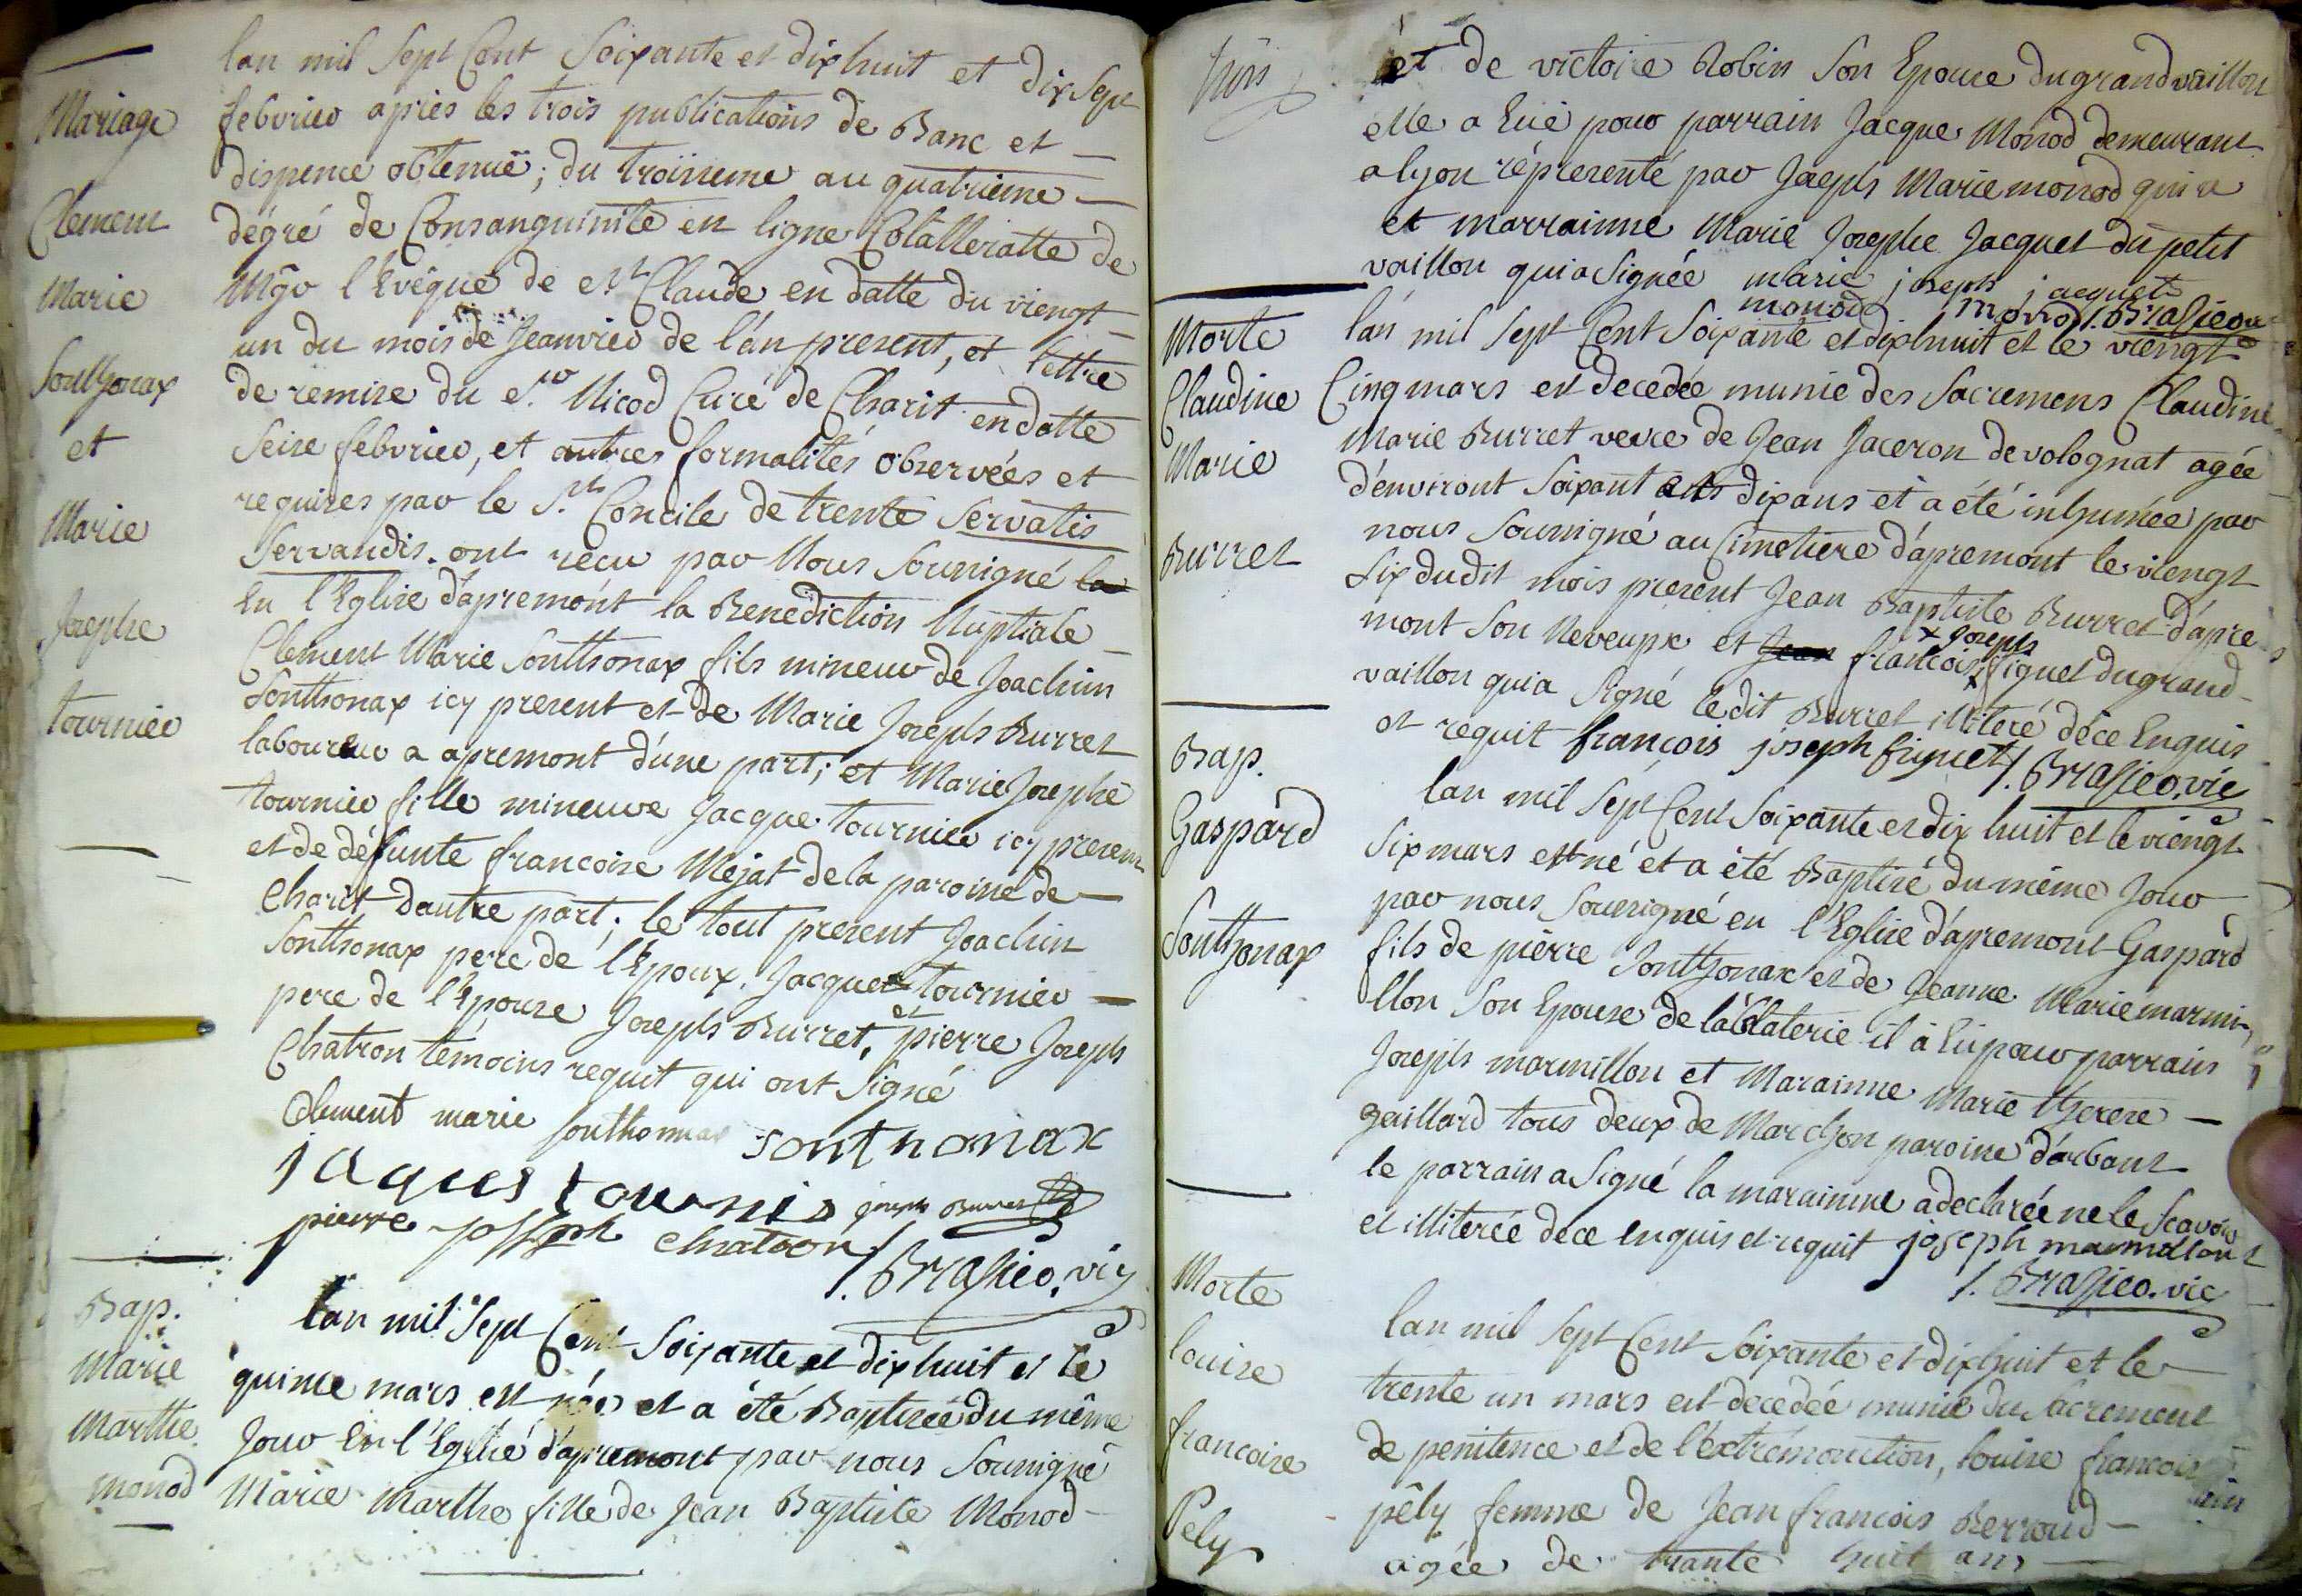 Mariage
Clement
Marie
Sonthonax
et
Marie
Josephe
tournier
lan mil Sept Cent Soixante et dixhuit et dix Sept
febvrier apries les trois publications de Banc et
dispence obtenuë; du troisieme au quatrieme
dégré de Consanguinité en ligne Colalleratte de
Mgr l'Evêque de St Claude en datte du viengt
un du mois de Jeanvier de l'an present, et lettre
de remise du Sr Nicod Curé de Charit en datte
Seise febvrier, et autres formalités observées et
requises par le St Concile de trente Servatis
Servandis. ont recu par Nous Soussigné la
En l'Eglise d'apremont la Benediction Nuptiale
Clement Marie Sonthonax fils mineur de Joachim
Sonthonax icy present et de Marie Joseph Burret
laboureur a apremont d'une part; et Marie Josephe
tournier fille mineure Jacque tournier icy present
et de défunte francoise Mejat de la paroisse de
Charit dautre part; le tout present Joachin
Sonthonax pere de l'Epoux, Jacque tournier
pere de l'Epouse Joseph Burret, et pierre Joseph
Chatron témoins requit qui ont Signé
Clement marie Sonthonnax sontnonax
jaques tournis joseph Burret
pierre joseph chatron
J. Brasier. vic
Bap.
Marie
Marthe
Monod
lan mil Sept Cent Soixante et dixhuit et le
quinse mars est née et a été Baptisée du même
Jour En l'Eglise d'apremont par nous Soussigné
Marie Marthe fille de Jean Baptiste Monod
et de victoire Robin Son Epouse du grand vaillon
elle a Euë pour parrain Jacque Monod demeurant
a lyon répresenté par Joseph Marie monod qui a
et marrainne Marie Josephe Jacquet du petit
vaillon qui a Signée marie joseph jacquet
monod monod J. Brasier
Morte
Claudine
Marie
Burret
lan mil Sept Cent Soixante et dixhuit et le viengt
Cinq mars est decedée munie des Sacremens Claudine
Marie Burret veuve de Jean Jaceron de volognat agée
d'environt Soixant et dix ans et a été inhumée par
nous Soussigné au Cimetiere d'apremont le viengt
Six dudit mois present Jean Baptiste Burret d'apre
mont Son Neveux et Jean francois x figuet du grand
x joseph
vaillon qui a Signé ledit Burret illiteré de ce Enquis
et requit françois joseph figuet J. Brasier. vic
Bap.
Gaspard
Sonthonax
lan mil Sept Cent Soixante et dix huit et le viengt
Six mars est né et a été Baptisé du même Jour
par nous Soussigné en l'Eglise d'apremont Gaspard
fils de pierre Sonthonax et de Jeanne Marie marmi
llon Son Epouse de la Claterie il à Eu pour parrain
Joseph marmillon et Marainne Marie therese
gaillard tous deux de Marchon paroisse d'arbant
le parrain a Signé la marainne a declarée ne le Scavoir
et illiterée de ce enquis et requit joseph marmillont
J. Brasier. vic
Morte
louise
francoise
Pely
lan mil Sept Cent Soixante et dixhuit et le
trente un mars est decedée munie du Sacrement
de penitence et de l'extremonction, louise francoise
pêly femme de Jean francois Berroud
agée de trante huit ans